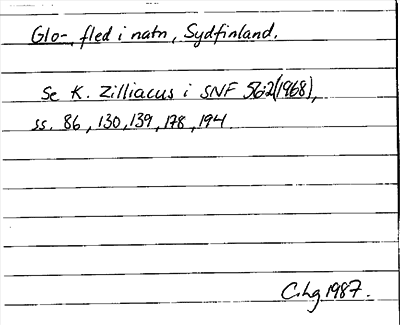 Glo-, fled i natn, Sydfinland.
Se K. Zilliacus i SNF 56:2 (1968),
ss. 86, 130, 139, 178, 194.
C.hg 1987.